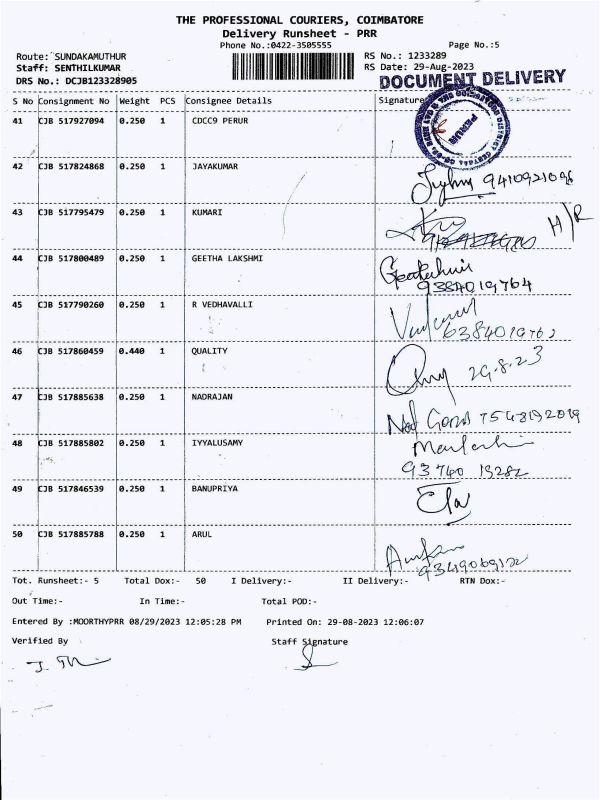 THE PROFESSIONAL COURIERS, COIMBATORE
Delivery Runsheet - PRR
Phone No.:0422-3505555
Page No.:5
Route: SUNDAKAMUTHUR
RS No.: 1233289
Staff: SENTHILKUMAR
RS Date: 29-Aug-2023
DRS No.: DCJB123328905
DOCUMENT DELIVERY
S No Consignment No Weight PCS Consignee Details Signature
PERUR
41 CJB 517927094 0.250 1 CDCC9 PERUR
42 CJB 517824868 0.250 1 JAYAKUMAR
9410921096
43 CJB 517795479 0.250 1 KUMARI
H/R
44 CJB 517800489 0.250 1 GEETHA LAKSHMI
9384019764
45 CJB 517790260 0.250 1 R VEDHAVALLI
46 CJB 517860459 0.440 1 QUALITY
29.8.23
47 CJB 517885638 0.250 1 NADRAJAN
48 CJB 517885802 0.250 1 IYYALUSAMY
49 CJB 517846539 0.250 1 BANUPRIYA
50 CJB 517885788 0.250 1 ARUL
Tot. Runsheet:- 5 Total Dox:- 50 I Delivery:- II Delivery:- RTN Dox:-
Out Time:- In Time:- Total POD:-
Entered By :MOORTHYPRR 08/29/2023 12:05:28 PM Printed On: 29-08-2023 12:06:07
Verified By Staff Signature